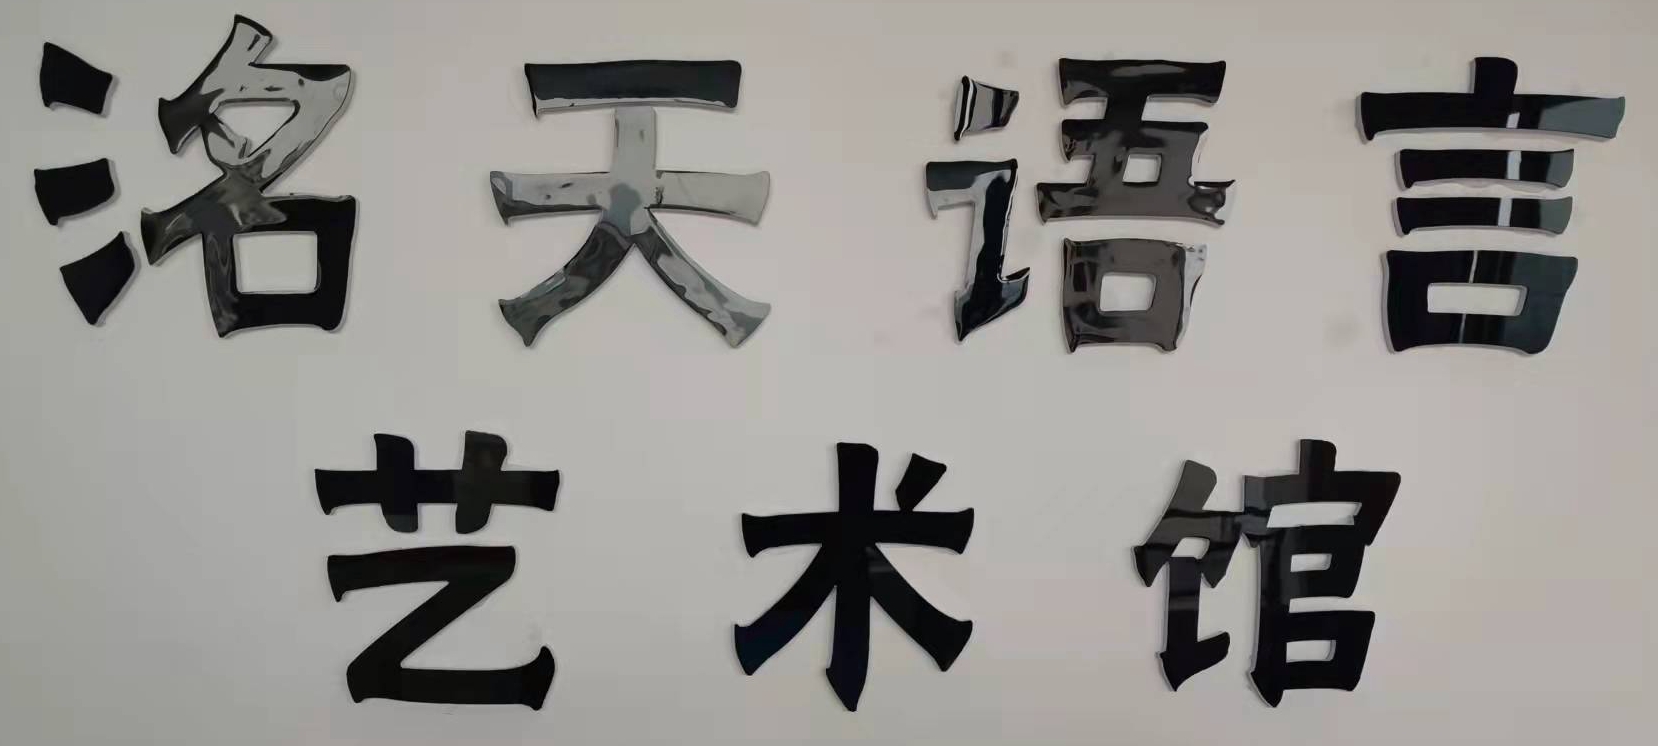 洛天语言
艺术馆